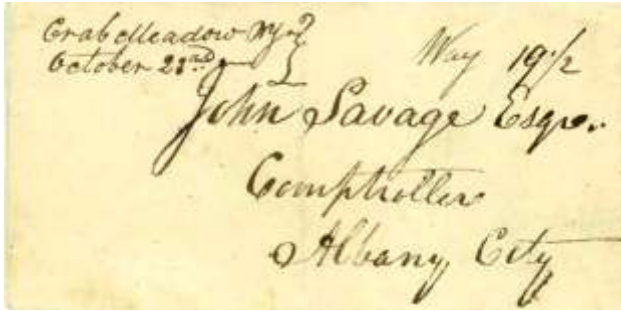 Crab Meadow NY
October 23rd
Way 19 1/2
John Savage Esqr.
Comptroller
Albany City